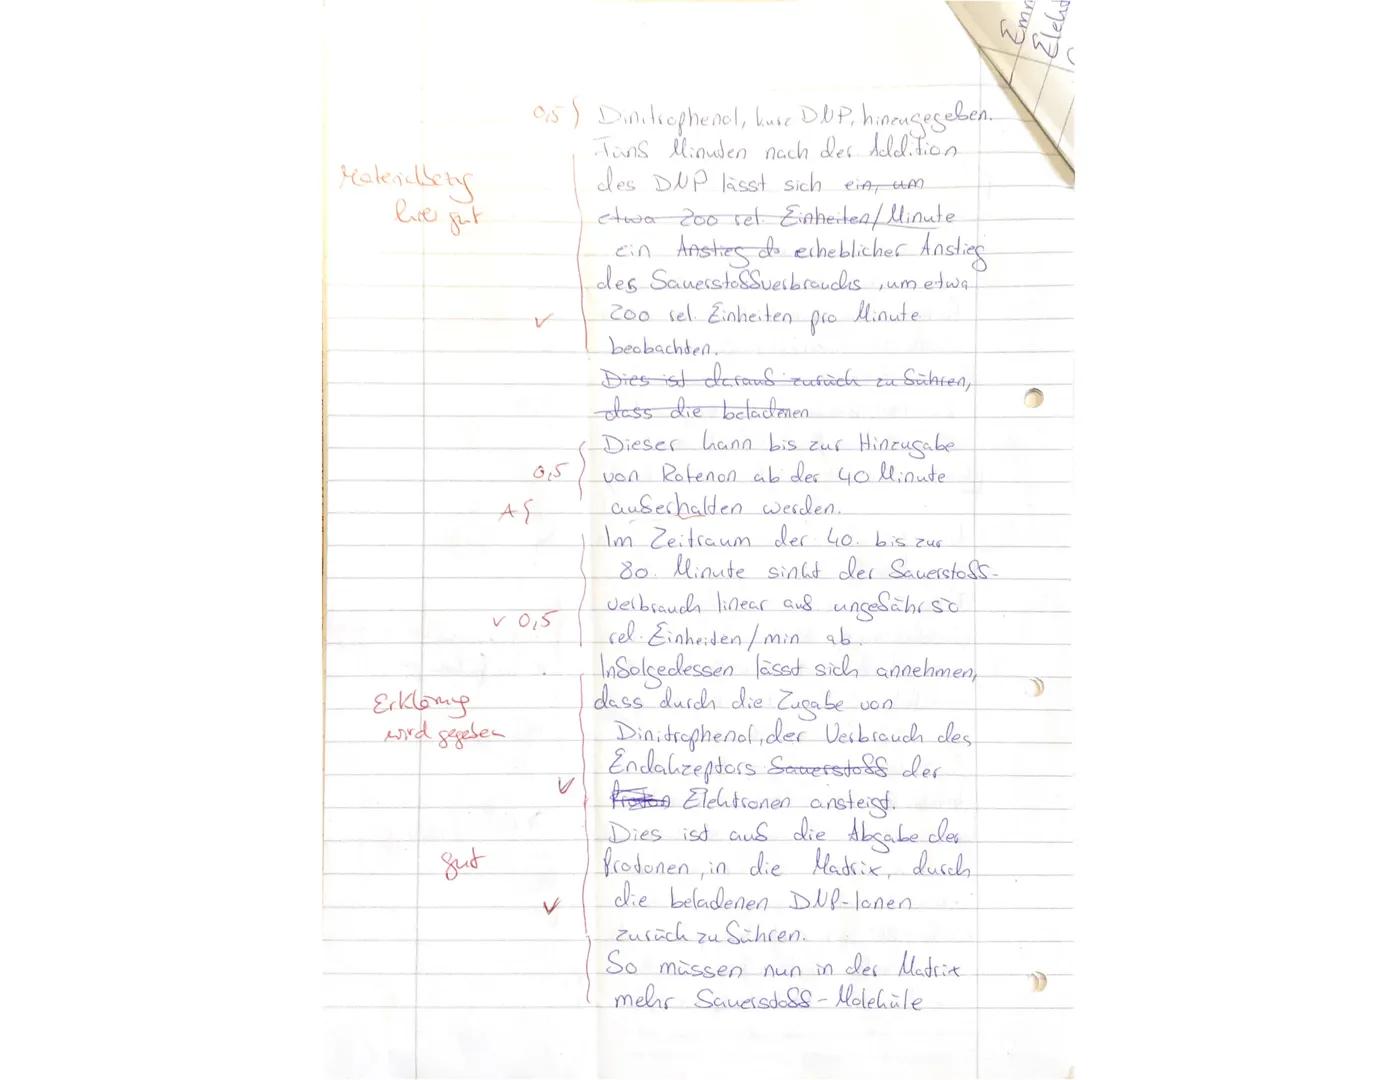 Emm
Elekt
0,5 Dinitrophenol, kurz DNP, hinzugegeben.
Fünf Minuten nach der Addition
Materialbezug
hier gut
des DNP lässt sich ein, um
etwa 200 rel. Einheiten/Minute
ein Anstieg d erheblicher Anstieg
des Sauerstoffverbrauchs, um etwa
✓ 200 rel. Einheiten pro Minute
beobachten.
Dies ist darauf zurück zu führen,
dass die beladenen
Dieser kann bis zur Hinzugabe
0,5 von Rotenon ab der 40 Minute
A auferhalten werden.
Im Zeitraum der 40. bis zur
80. Minute sinkt der Sauerstoff-
verbrauch linear auf ungefähr 50
✓ 0,5 rel. Einheiten/min ab.
Infolgedessen lässt sich annehmen,
Erklärung
wird gegeben
dass durch die Zugabe von
Dinitrophenol, der Verbrauch des
Endakzeptors Sauerstoff der
✓ Proton Elektronen ansteigt.
Dies ist auf die Abgabe der
gut Protonen, in die Matrix, durch
✓ die beladenen DNP-Ionen
zurück zu führen.
So müssen nun in der Matrix
mehr Sauerstoff-Moleküle